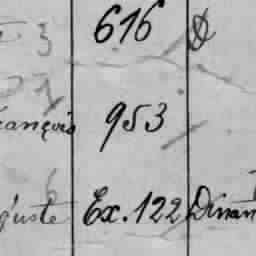 3 616
ançois 953
guste Ex. 122 Dinan